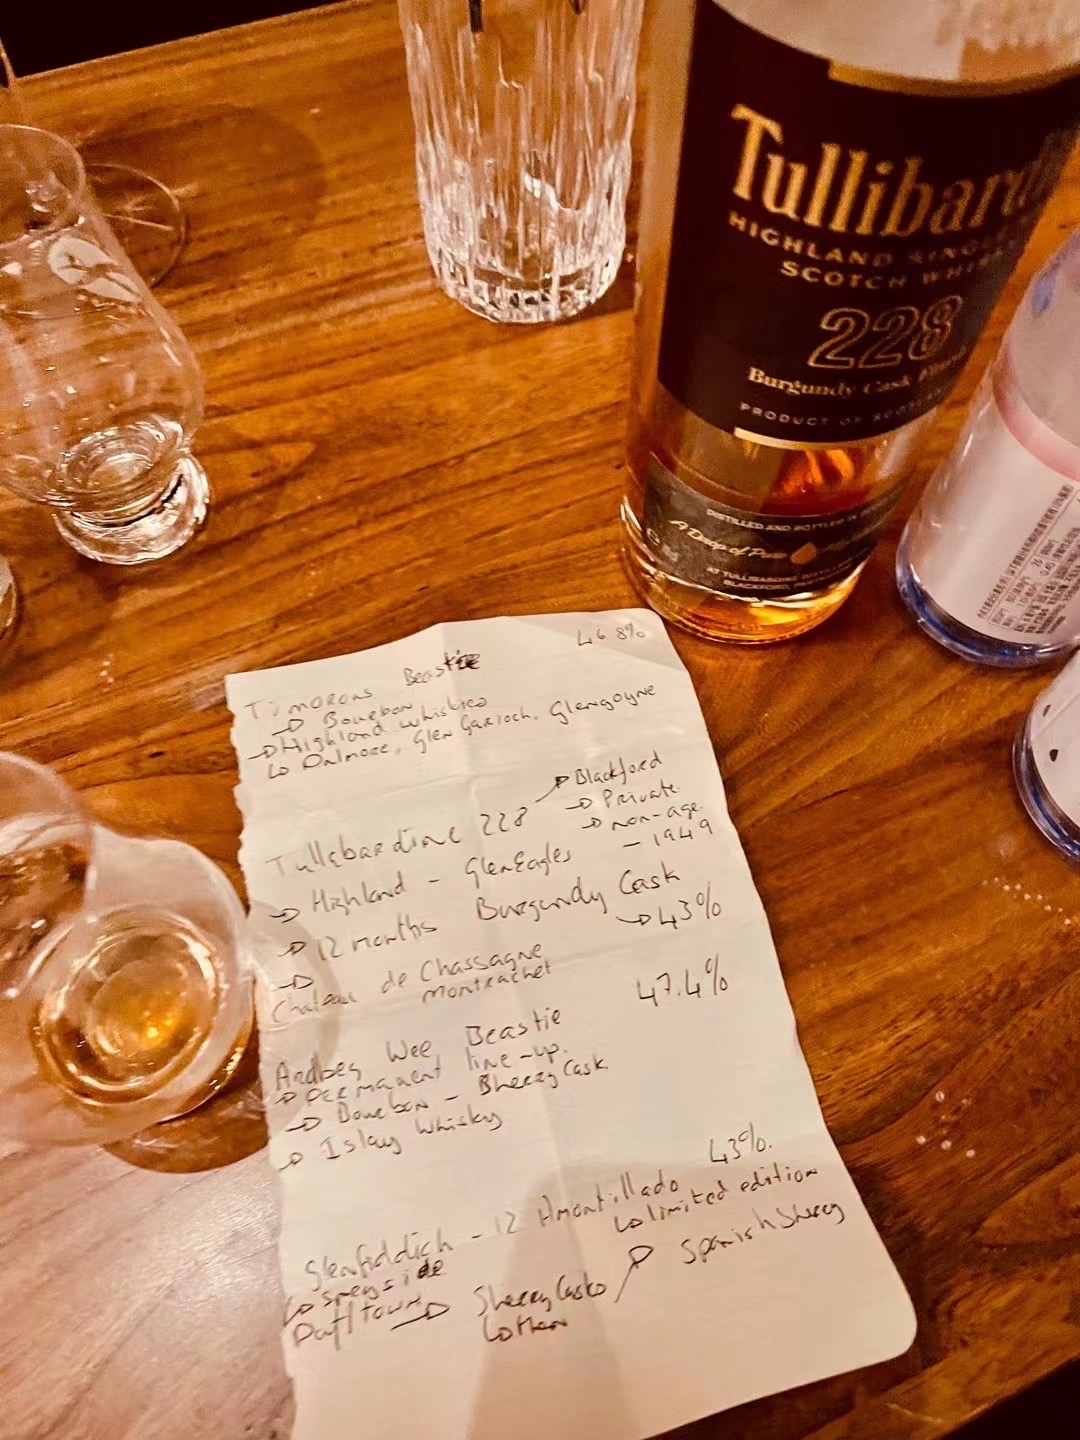 Tullibard
HIGHLAND SINGL
SCOTCH WHIS
228
Burgundy Cask
PRODUCT OF SCOTLAND
DISTILLED AND BOTTLED IN
A Drop of Pure
AT TULLIBARDINE DISTILL
BLACKFORD,
Timorous Beastie 46.8%
→ Bourbon
→ Highland whiskies
↳ Dalmore, Glen Garioch, Glengoyne
Tullabardine 228 → Blackford
→ Private
→ non-age.
→ Highland - GlenEagles - 1949
→ 12 months Burgundy Cask
→ 43%
→ Chateau de Chassagne
Montrachet
Ardbeg Wee Beastie 47.4%
→ Permanent line-up.
→ Bourbon - Sherry Cask.
→ Islay Whisky
Glenfiddich - 12 Amontillado 43%.
↳ Speyside ↳ limited edition
→ Sherry Casks → Spanish Sherry